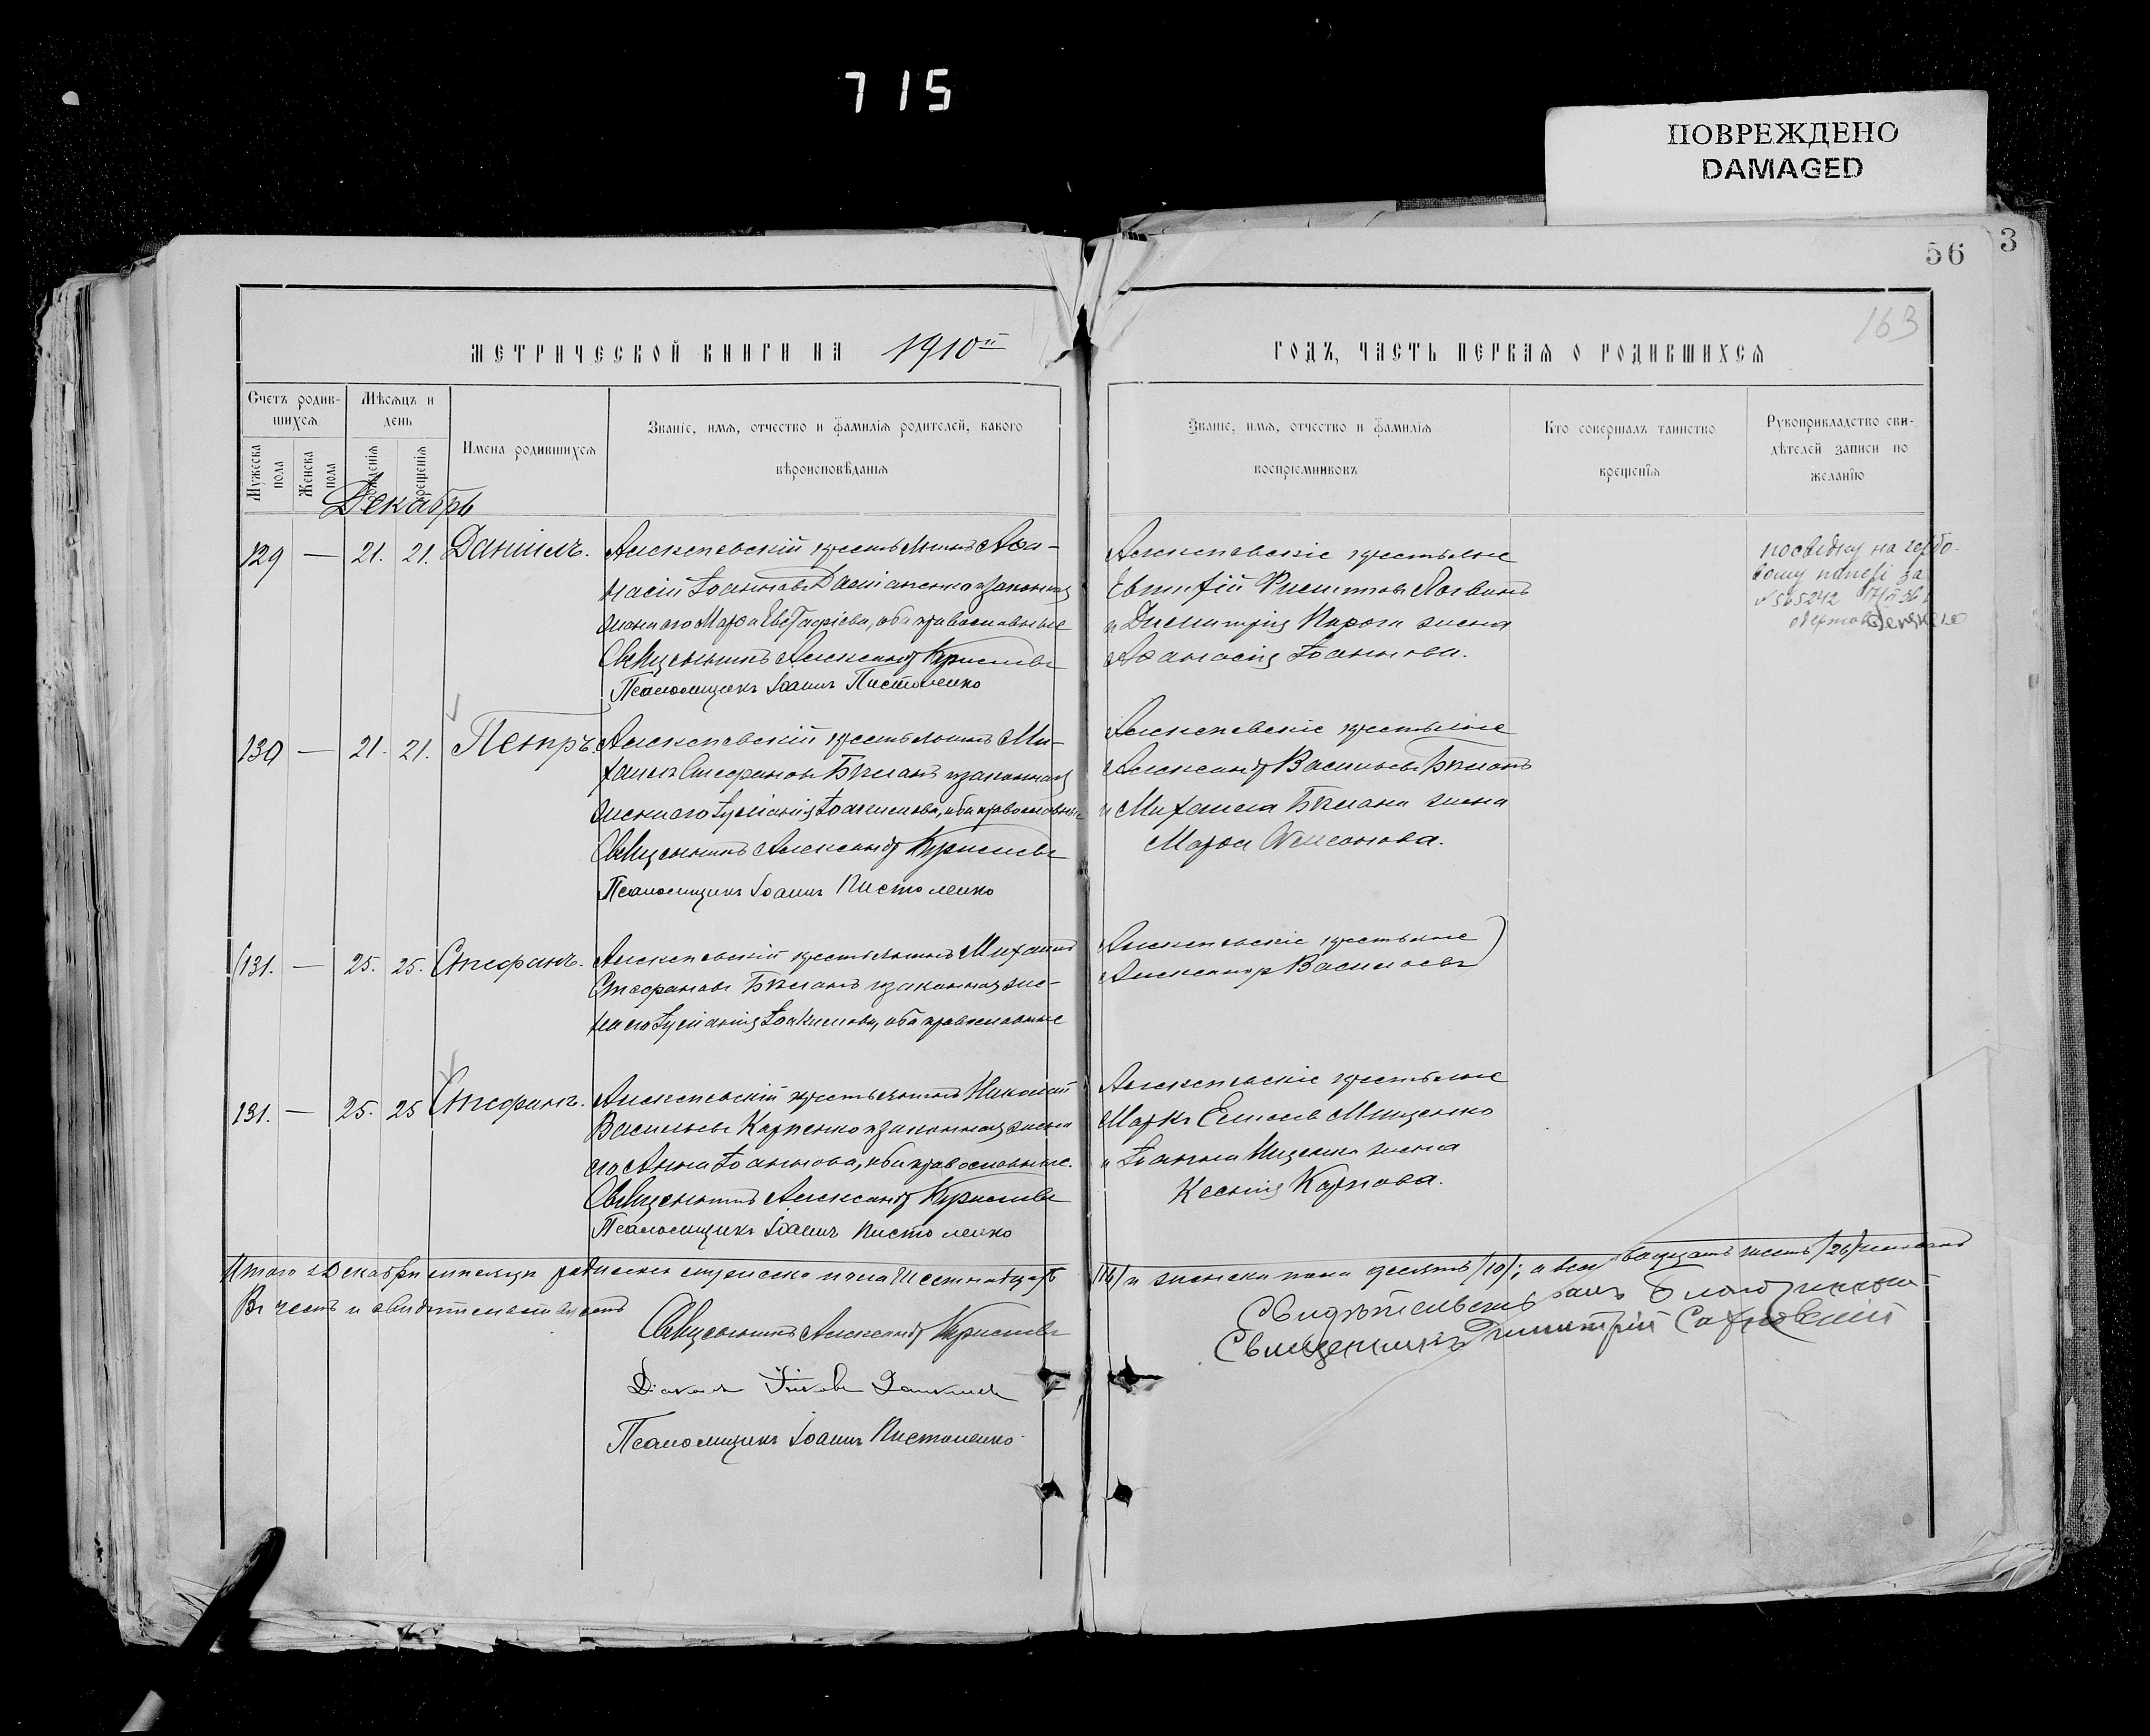 715
ПОВРЕЖДЕНО
DAMAGED
56
3
163
МЕТРИЧЕСКОЙ КНИГИ НА 1910й
ГОДЪ, ЧАСТЬ ПЕРВАЯ О РОДИВШИХСЯ
Счетъ родившихся
Мужеска пола
Женска пола
Мѣсяцъ и день
рожденія
крещенія
Имена родившихся
Званіе, имя, отчество и фамилія родителей, какого
вѣроисповѣданія
Званіе, имя, отчество и фамилія
воспріемниковъ
Кто совершалъ таинство
крещенія
Рукоприкладство сви-
дѣтелей записи по
желанію
Декабрь
129 — 21. 21. Даніилъ.
Алексѣевскій крестьянинъ Аѳа-
насій Іоанновъ и законная
жена его Марѳа, оба православные
Священникъ Александръ
Псаломщикъ Іоаннъ Пистоленко
Алексѣевскіе крестьяне
Евтихій Логвинъ
и Димитрія жена
Аѳанасія Іоаннова.
130 — 21. 21. Петръ.
Алексѣевскій крестьянинъ Ми-
хаилъ Стефановъ Бѣланъ и законная
жена его Іуліанія Іоакимова, оба православные
Священникъ Александръ
Псаломщикъ Іоаннъ Пистоленко
Алексѣевскіе крестьяне
Александръ Васильевъ Бѣланъ
и Михаила Бѣлана жена
Марѳа
(131. — 25. 25. Стефанъ.
Алексѣевскій крестьянинъ Михаилъ
Стефановъ Бѣланъ и законная же-
на его Іуліанія Іоакимова, оба православные
Алексѣевскіе крестьяне
Александръ Васильевъ)
131. — 25. 25 Стефанъ.
Алексѣевскій крестьянинъ Николай
Васильевъ Карпенко и законная жена
его Анна Іоаннова, оба православные.
Священникъ Александръ
Псаломщикъ Іоаннъ Пистоленко
Алексѣевскіе крестьяне
Маркъ Мищенко
и Іоанна Мищенка жена
Ксенія Карпова.
Итого въ Декабрѣ мѣсяцѣ родилось мужеска пола шестнадцать
/16/ и женска пола десять /10/; а всего двадцать шесть /26/
Въ чемъ и свидѣтельствуютъ
Священникъ Александръ
Діаконъ
Псаломщикъ Іоаннъ Пистоленко
Свидѣтельствовалъ Благочинный
Священникъ Димитрій